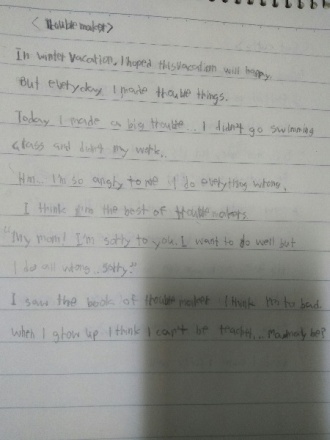 <trouble maker>
In winter vacation, I hoped this vacation will happy.
But everyday I made trouble things.
Today I made a big trouble... I didn't go swimming
class and didn't my work.
Hm... I'm so angry to me I do everything wrong.
I think I'm the best of trouble makers.
"My mom! I'm sorry to you. I want to do well but
I do all wrong.. sorry."
I saw the book of trouble maker I think I'm so bad.
When I grow up I think I can't be teacher...